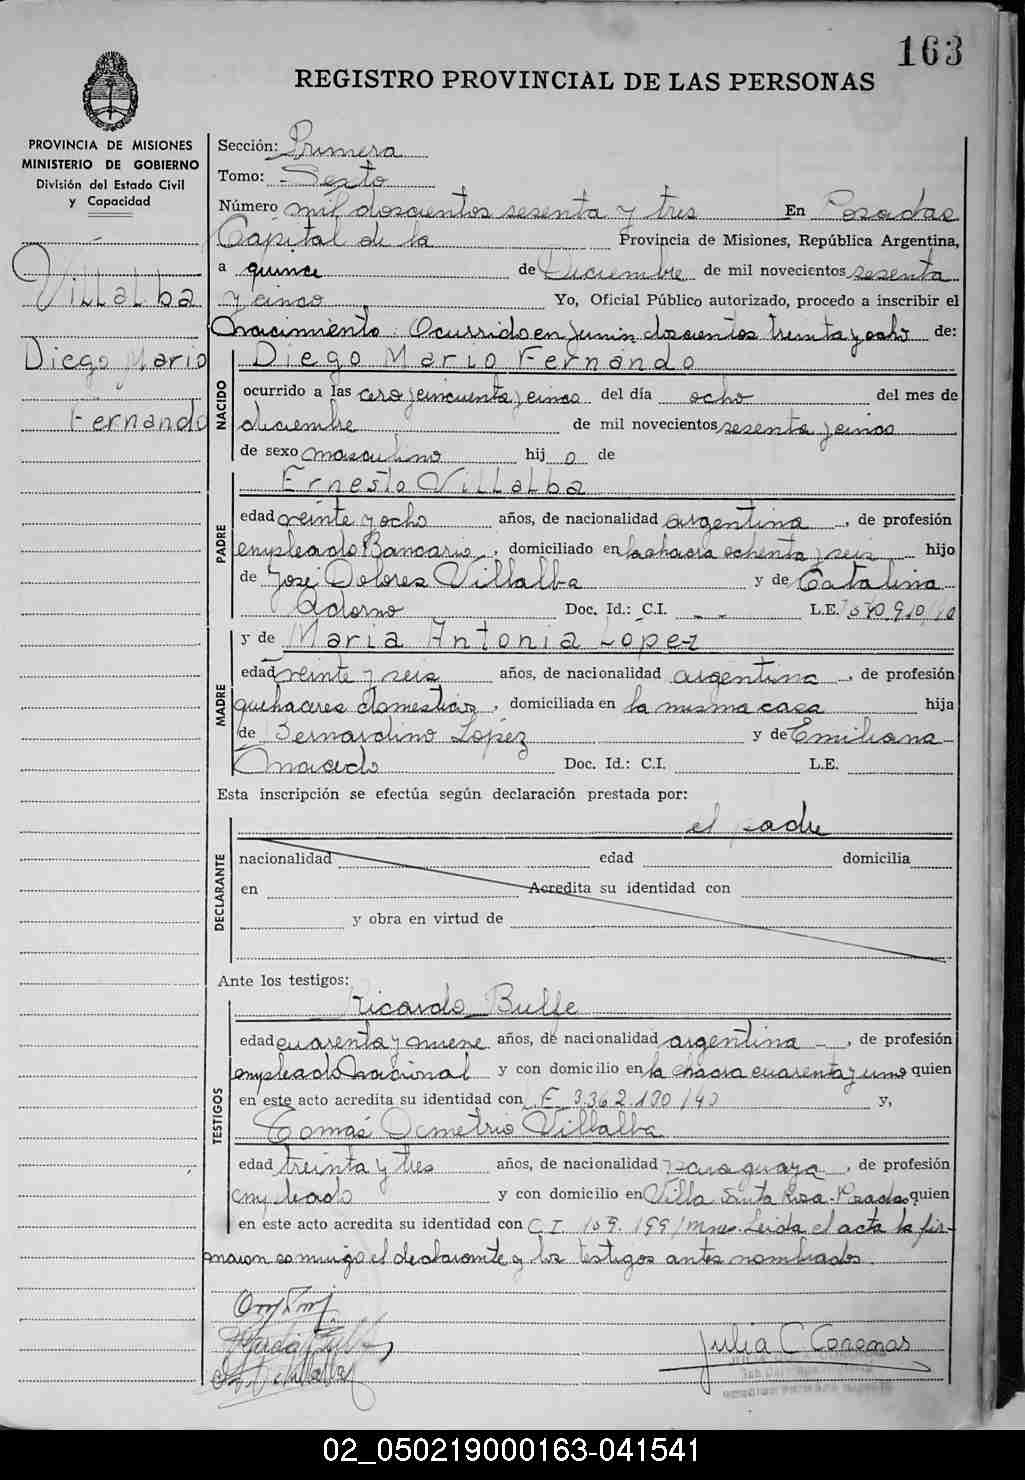 163
REGISTRO PROVINCIAL DE LAS PERSONAS
PROVINCIA DE MISIONES
MINISTERIO DE GOBIERNO
División del Estado Civil
y Capacidad
Villalba
Diego Mario
Fernando
Sección: Primera
Tomo: Sexto
Número mil doscientos sesenta y tres En Posadas
Capital de la Provincia de Misiones, República Argentina,
a quince de Diciembre de mil novecientos sesenta
y cinco Yo, Oficial Público autorizado, procedo a inscribir el
Nacimiento. Ocurrido en Junin doscientos treinta y ocho de:
NACIDO
Diego Mario Fernando
ocurrido a las cero y cincuenta y cinco del día ocho del mes de
diciembre de mil novecientos sesenta y cinco
de sexo masculino hij o de
PADRE
Ernesto Villalba
edad veinte y ocho años, de nacionalidad argentina, de profesión
empleado Bancario, domiciliado en la chacra ochenta y seis hijo
de José Dolores Villalba y de Catalina
Adorno Doc. Id.: C.I. - - L.E.
MADRE
y de María Antonia López
edad veinte y seis años, de nacionalidad argentina, de profesión
quehaceres domesticos, domiciliada en la misma casa hija
de Bernardino López y de Emiliana
Macedo Doc. Id.: C.I. L.E.
Esta inscripción se efectúa según declaración prestada por:
el padre
DECLARANTE
nacionalidad edad domicilia
en Acredita su identidad con
y obra en virtud de
Ante los testigos:
TESTIGOS
Ricardo Bulfe
edad cuarenta y nueve años, de nacionalidad argentina, de profesión
empleado Nacional y con domicilio en la chacra cuarenta y uno quien
en este acto acredita su identidad con L.E. 3.362.130/40 y,
Tomás Demetrio Villalba
edad treinta y tres años, de nacionalidad paraguaya, de profesión
empleado y con domicilio en Villa Santa Rosa - Posadas quien
en este acto acredita su identidad con C.I. 109.199/Mnes. Leída el acta la fir-
maron conmigo el declarante y los testigos antes nombrados.
Julia C
02_050219000163-041541